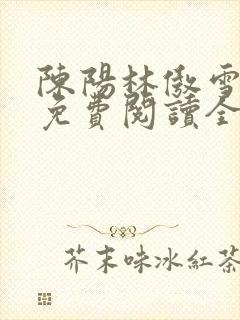 陳陽林傲雪
免費閱讀全
芥末味冰紅茶